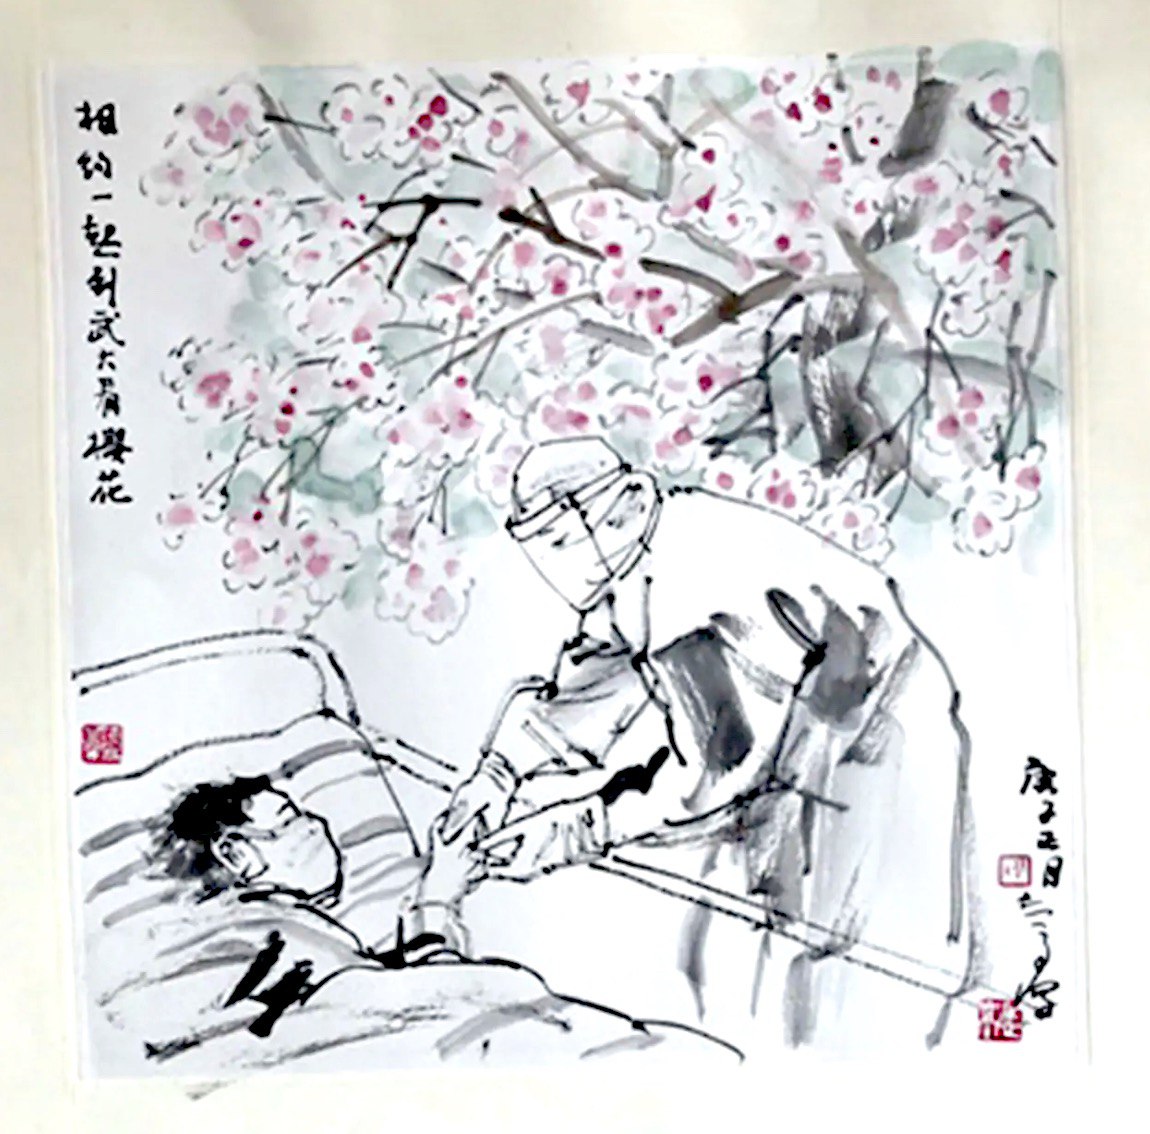 相约一起到武大看樱花
庚子正月